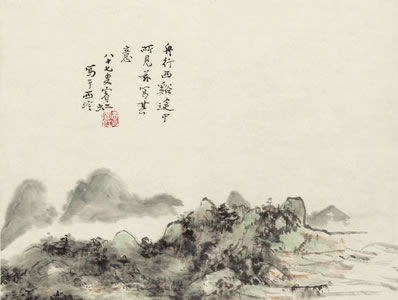 舟行西谿途中
所見寫其
意
八十七叟賓虹
寫于西泠